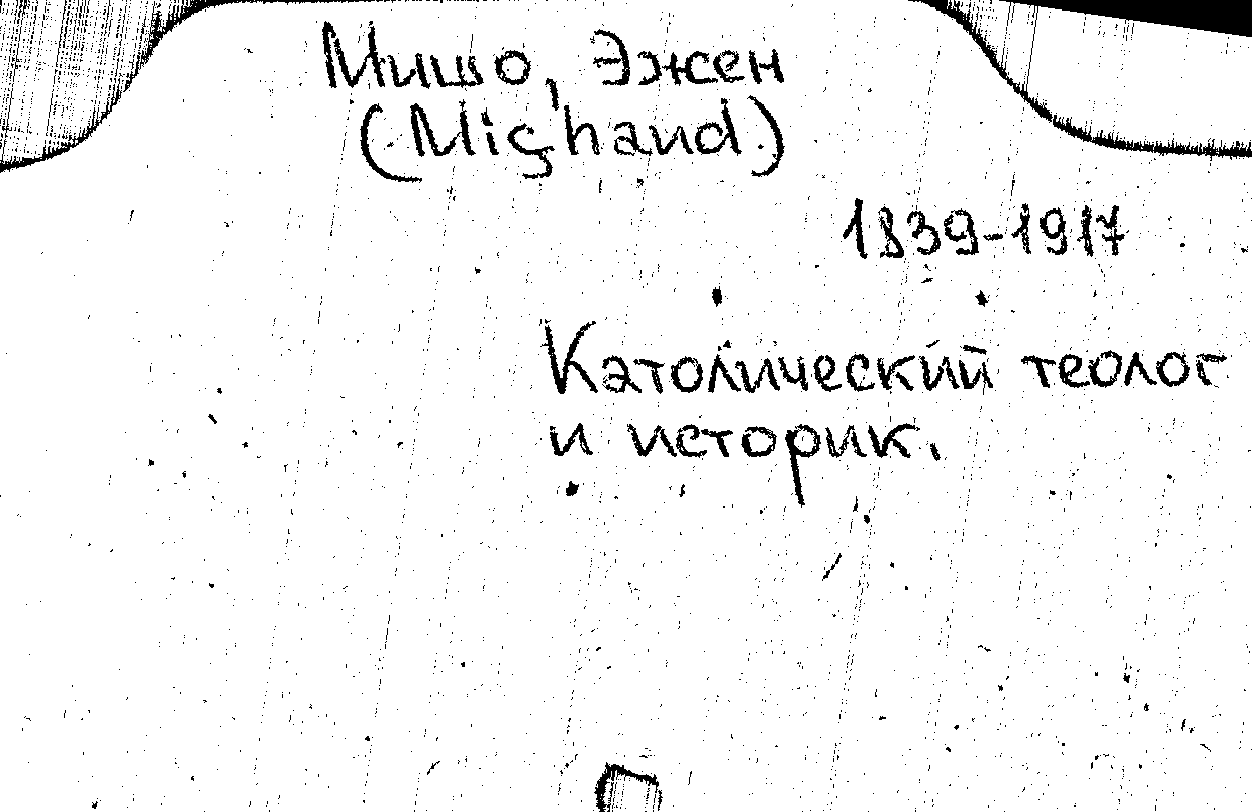 Мишо, Эжен
(Mişhaud)
1839-1917
Католический теолог
и историк.